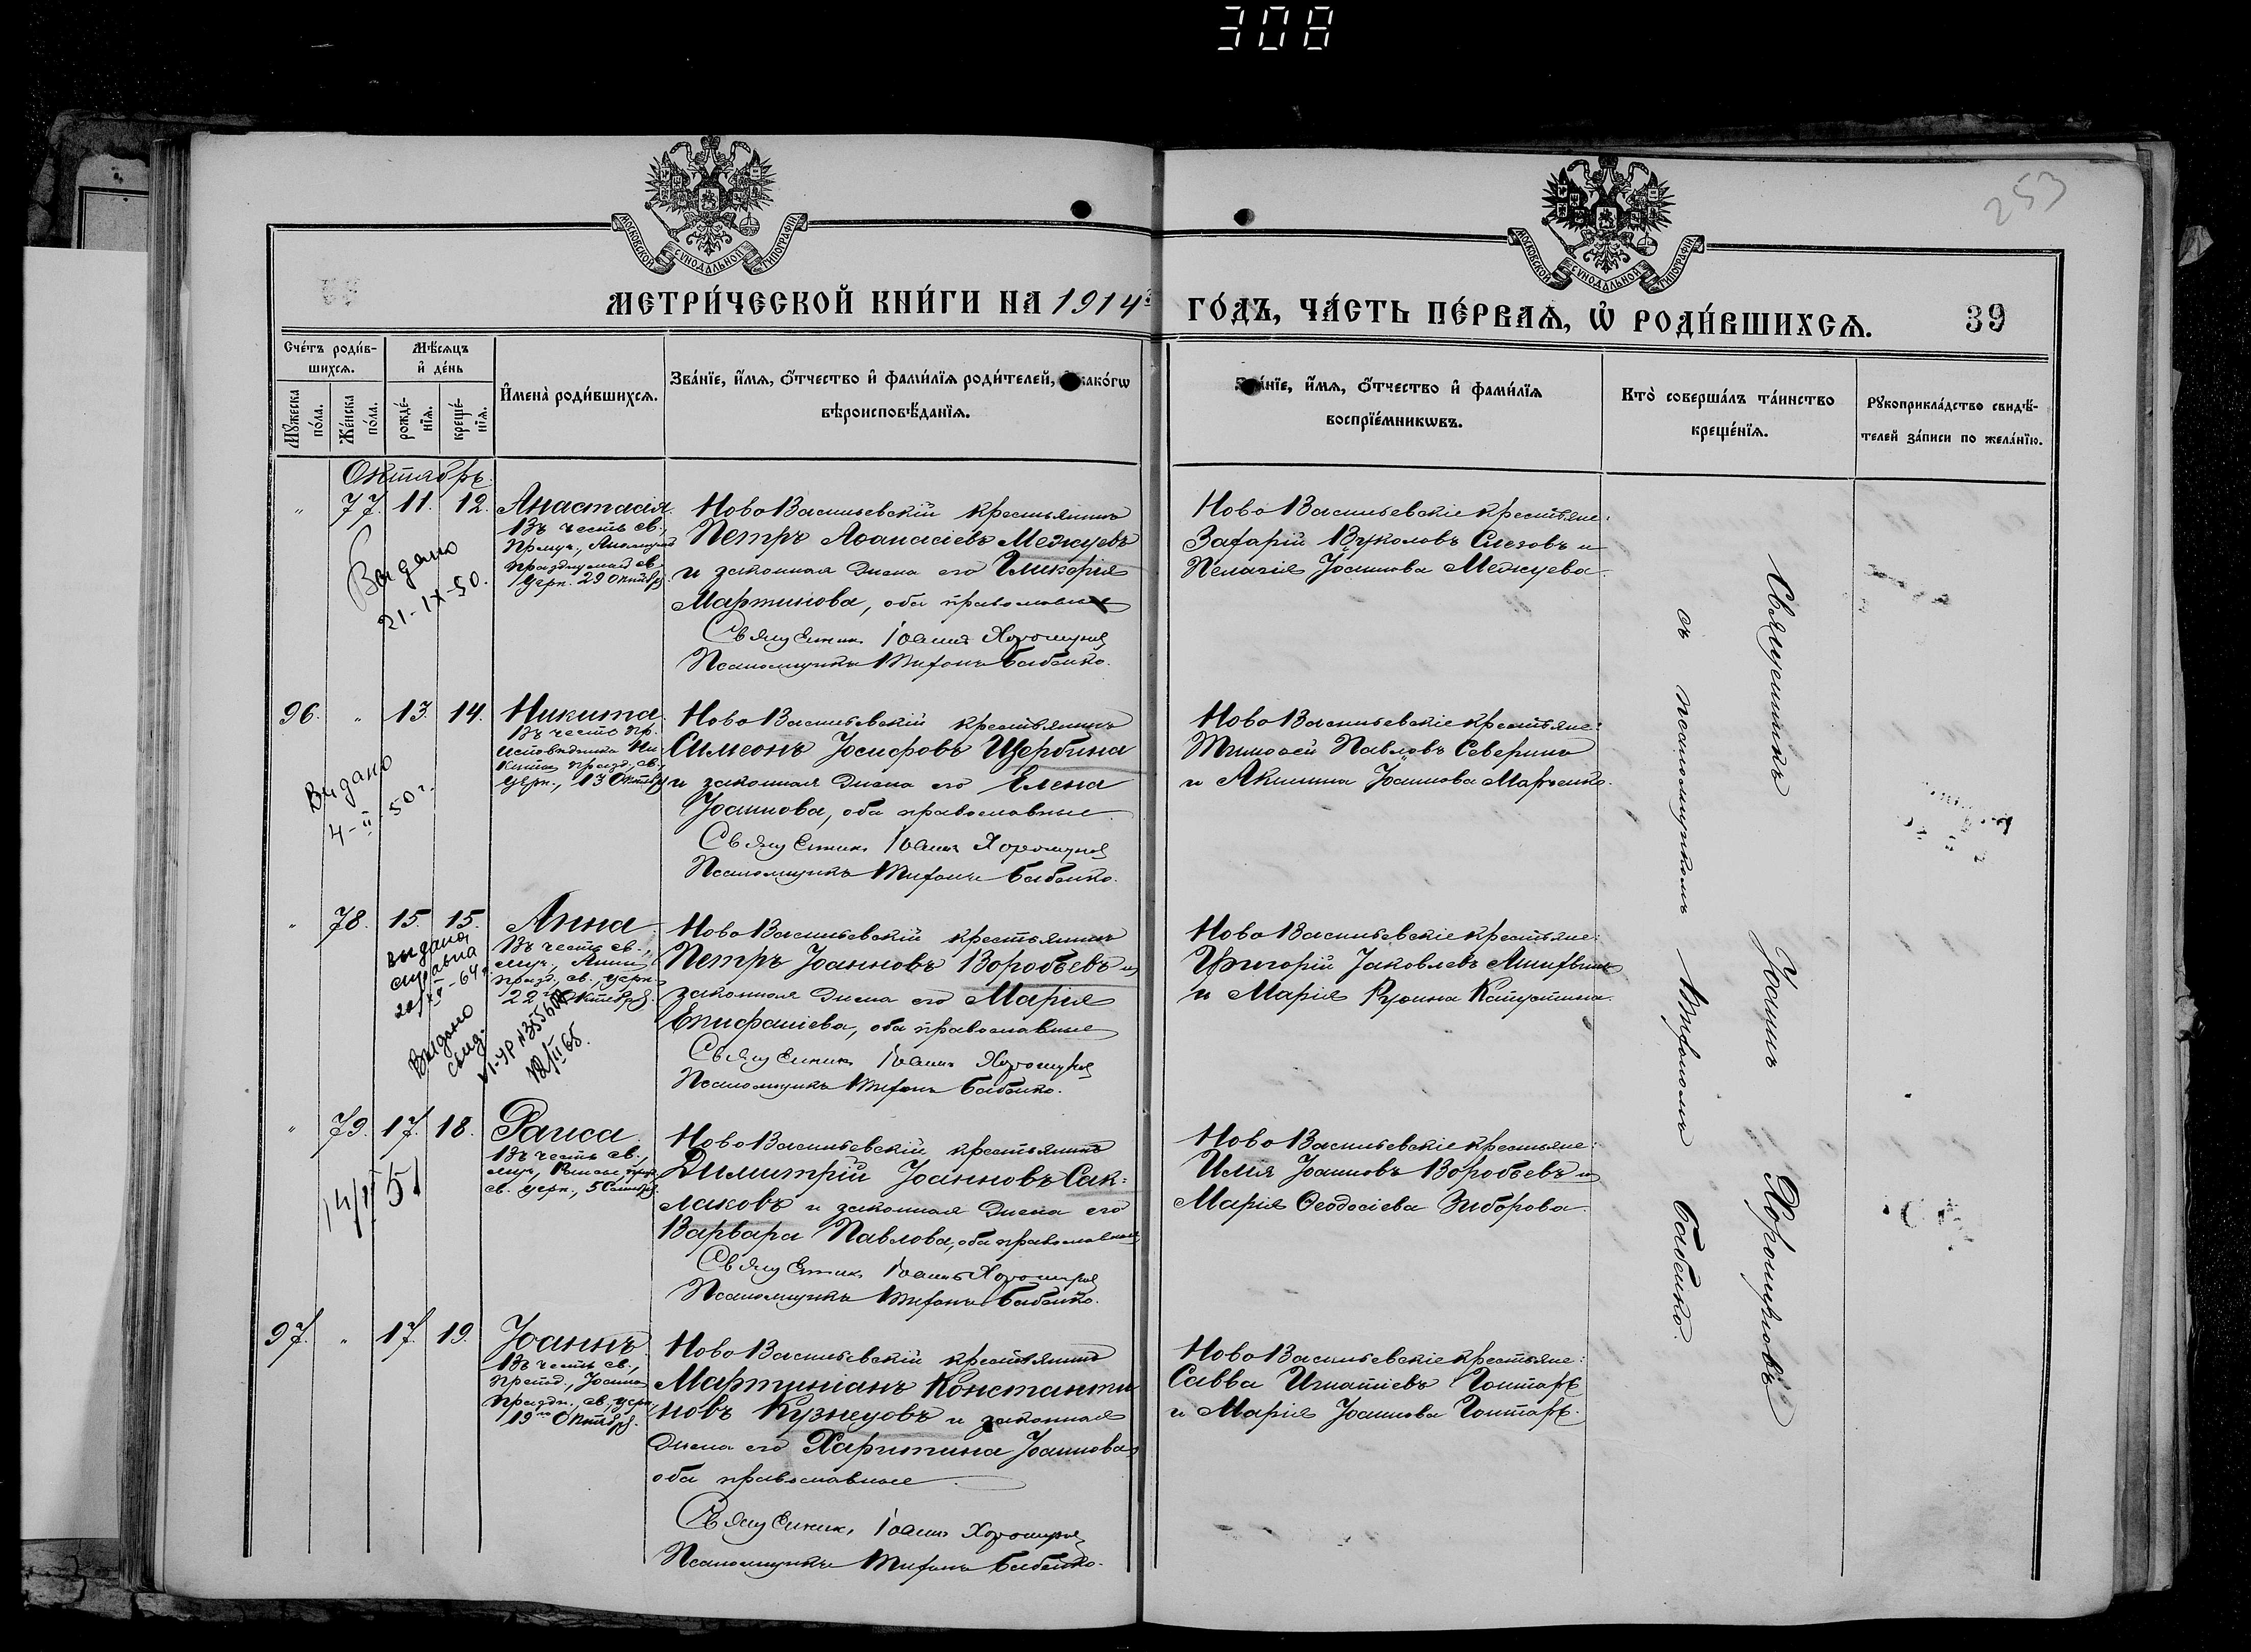 308
253
МОСКОВСКОЙ СѴНОДАЛЬНОЙ ТИПОГРАФІИ
МОСКОВСКОЙ СѴНОДАЛЬНОЙ ТИПОГРАФІИ
МЕТРИ́ЧЕСКОЙ КНИ́ГИ НА 1914й ГО́ДЪ, ЧА́СТЬ ПЕ́РВАѦ, Ѡ҆ РОДИ́ВШИХСѦ.
39
Сче́тъ роди́в-
шихсѧ.
Мꙋ́жеска
по́ла.
Же́нска
по́ла.
Мѣ́сѧцъ
и҆ де́нь
рожде́-
нїѧ.
креще́-
нїѧ.
И҆мена̀ роди́вшихсѧ.
Зва́нїе, и҆́мѧ, ѻ҆́тчество и҆ фами́лїѧ роди́телей, и҆ како́гѡ
вѣроисповѣ́данїѧ.
Зва́нїе, и҆́мѧ, ѻ҆́тчество и҆ фами́лїѧ
воспрїе́мникѡвъ.
Кто̀ соверша́лъ та́инство
креще́нїѧ.
Рꙋкоприкла́дство свидѣ́-
телей за́писи по жела́нїю.
Октябрь.
„ 77. 11. 12. Анастасія.
Въ честь св.,
Прмуч., Анастасіи
празднуемой св.
Церк. 29 Октября.
Выдано
21-IX-50.
Ново Васильевскій крестьянинъ
Петръ Аѳанасіевъ Межуевъ
и законная жена его Гликерія
Мартинова, оба православные
Священник Іоаннъ Хорошунов
Псаломщикъ Тихонъ Бабенко.
Ново Васильевскіе крестьяне:
Захарій Вуколовъ Слезовъ и
Пелагія Іоаннова Межуева.
96. „ 13. 14. Никита.
Въ честь пр.
Исповѣдника Ни-
киты празд., св.,
Церк., 13 Октября
Выдано
4-II-50 г.
Ново Васильевскій крестьянинъ
Симеонъ Іосифовъ Щербина
и законная жена его Елена
Іоаннова, оба православные.
Священник Іоаннъ Хорошунов
Псаломщикъ Тихонъ Бабенко.
Ново Васильевскіе крестьяне:
Тимоѳей Павловъ Северинъ
и Акилина Іоаннова Марченко.
„ 78. 15. 15. Анна.
Въ честь св.,
муч., Анны,
празд., св., церк.
22го Октября.
выдана
справка
Выдано
свид.
Ново Васильевскій крестьянинъ
Петръ Іоанновъ Воробьевъ и
законная жена его Марія
Епифаніева, оба православные
Священник Іоаннъ Хорошунов
Псаломщикъ Тихонъ Бабенко.
Ново Васильевскіе крестьяне:
Григорій Іаковлевъ
и Марія Капустина.
„ 79. 17. 18. Раиса.
Въ честь св.,
муч., Раисы, празд.
св. церк., 5 Сентября.
14/II 51
Ново Васильевскій крестьянинъ
Димитрій Іоанновъ Сак-
лаковъ и законная жена его
Варвара Павлова, оба православные
Священник Іоаннъ Хорошунов
Псаломщикъ Тихонъ Бабенко.
Ново Васильевскіе крестьяне:
Илія Іоанновъ Воробьевъ и
Марія Ѳеодосіева Зиборова.
97. „ 17. 19. Іоаннъ.
Въ честь св.,
препод., Іоанна
праздн., св., церк.,
19го Октября.
Ново Васильевскій крестьянинъ
Мартиніанъ Константи
новъ Кузнецовъ и законная
жена его Харитина Іоаннова
оба православные
Священник Іоаннъ Хорошунов
Псаломщикъ Тихонъ Бабенко.
Ново Васильевскіе крестьяне:
Савва Игнатіевъ Гонтарь
и Марія Іоаннова Гонтарь.
Священникъ Іоаннъ Хорошуновъ
съ псаломщикомъ Тихономъ Бабенко.